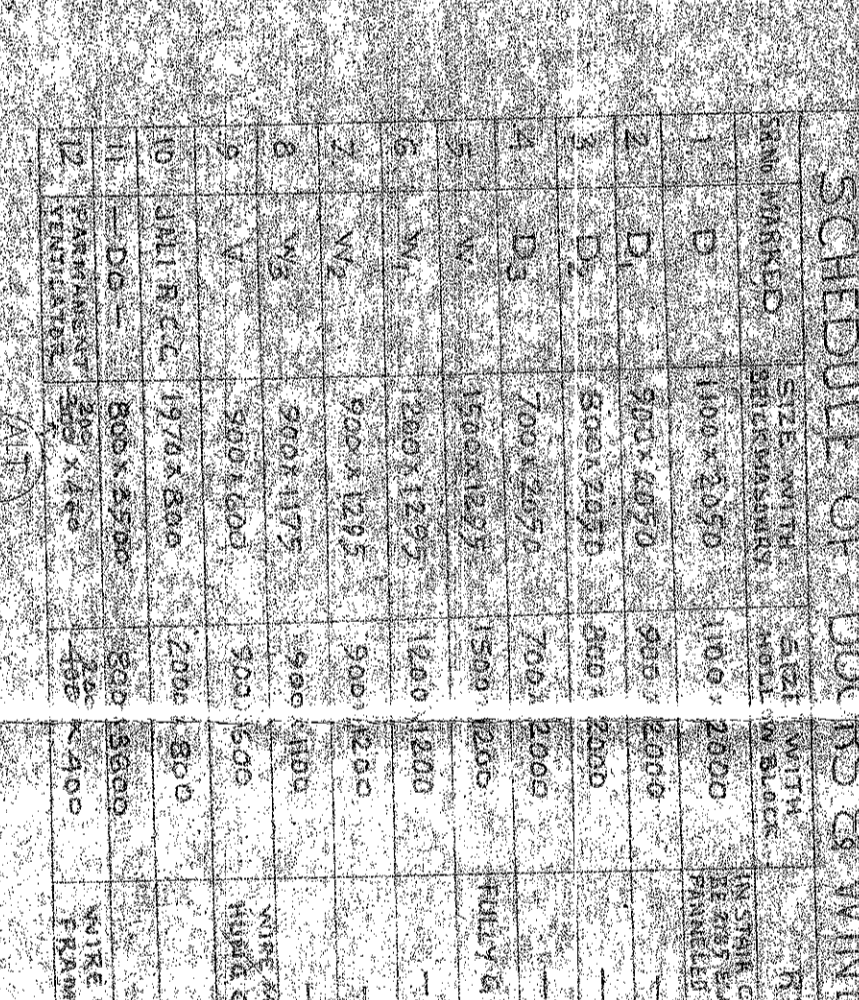 SCHEDULE OF DOORS & WIND
SR.No MARKED SIZE WITH BRICKMASONRY SIZE WITH HOLLOW BLOCK
1 D 1100 x 2050 1100 x 2000 IN STAIR
PANNELED
2 D1 900 x 2050 900 x 2000
3 D2 800 x 2050 800 x 2000
4 D3 700 x 2050 700 x 2000
5 W 1500 x 1295 1500 1200 FULLY G
6 W1 1200 x 1295 1200 x 1200
7 W2 900 x 1295 900 x 1200
8 W3 900 x 1175 900 1100
9 V 900 x 600 900 x 600 WIRE
HUNG
10 JALI R.C.C. 1970 x 800 2000 x 800
11 —DO— 800 x 3500 800 x 3600
12 PARMANENT VENTILATOR 200 x 400 200 x 400 WIRE
FRAM
ALT